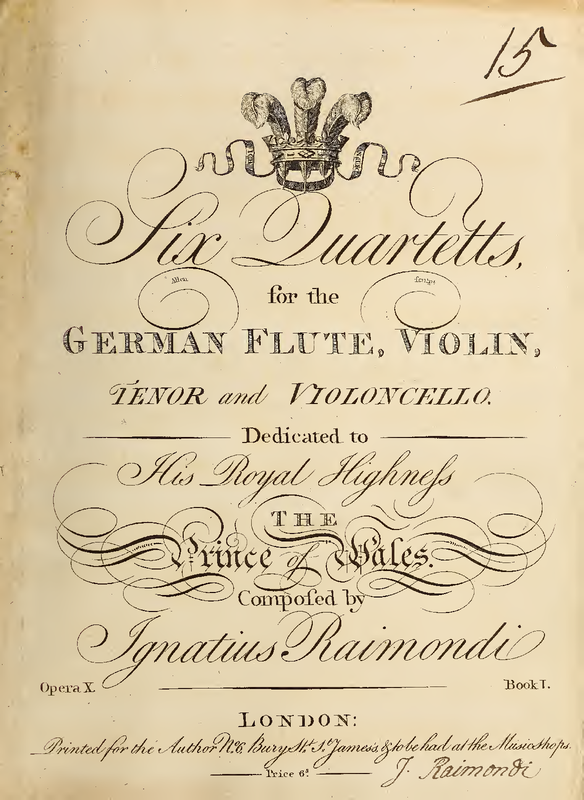 15
Six Quartetts,
for the
GERMAN FLUTE, VIOLIN,
TENOR and VIOLONCELLO.
Dedicated to
His Royal Highneſs
THE
Prince of Wales.
Compoſed by
Ignatius Raimondi
Opera X. Book I.
LONDON:
Printed for the Author No. 6, Bury Str. St. James's, & to be had at the Music shops.
Price 6s
J. Raimondi